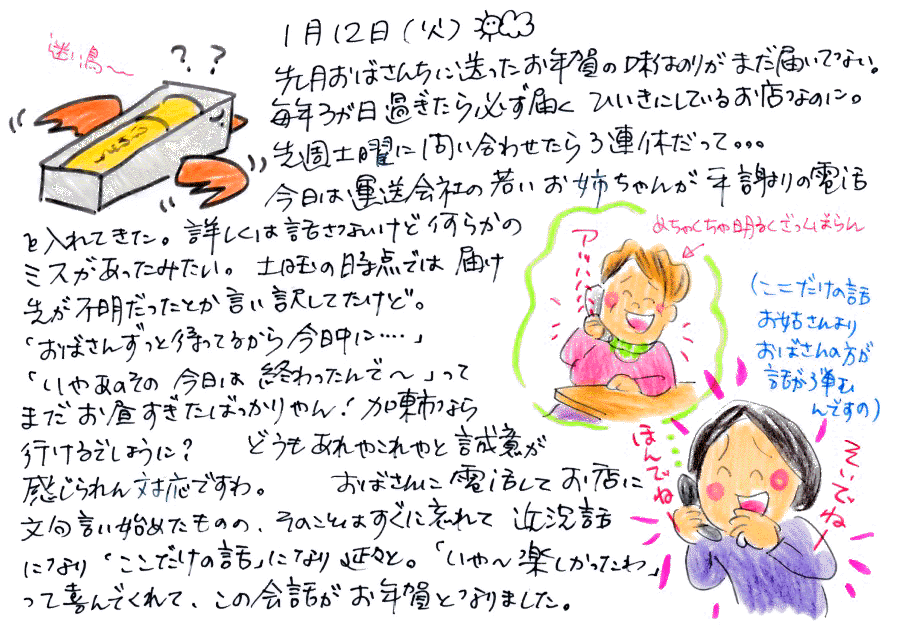 1月12日(火)
迷い鳥〜
???
先月おばさんちに送ったお年賀の味付のりがまだ届いてない。
毎年3が日過ぎたら必ず届く ひいきにしているお店なのに。
先週土曜に問い合わせたら3連休だって...
今日は運送会社の若いお姉ちゃんが平謝りの電話
を入れてきた。詳しくは話さないけど何らかの
ミスがあったみたい。土曜の時点では届け
先が不明だったとか言い訳してたけど。
「おばさんずっと待ってるから今日中に....」
「いやあのその 今日は 終わったんで〜」って
まだお昼すぎたばっかりやん!加東市なら
行けるでしょうに? どうもあれやこれやと誠意が
感じられん対応ですわ。 おばさんに電話してお店に
文句言い始めたものの、そのことはすぐに忘れて 近況話
になり「ここだけの話」になり延々と。「いや〜楽しかったわ」
って喜んでくれて、この会話がお年賀となりました。
めちゃくちゃ明るくざっくばらん
アハハハハ
(ここだけの話
お姑さんより
おばさんの方が
話が弾む
んですの)
ほんでね
そいでね